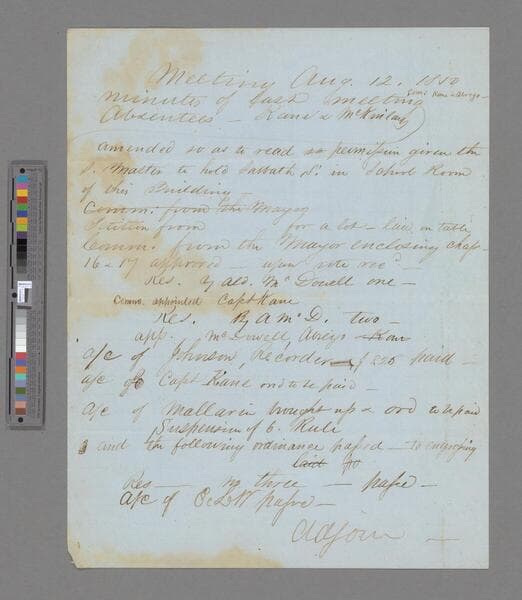 Meeting Aug. 12. 1850
minutes of last meeting
Absentees – Kane & McKinlay
amended so as to read so permission given the
S. Master to hold Sabbath S. in School Room
of this Building –
Comm. from the Mayor
Petition from for a lot – laid on table
Comm. from the Mayor enclosing chap
16 – 17 approved – upon vote rec.d –
Res. by Ald. Mc Dowell one –
Comm. appointed Capt Kane
Res. By A Mc D. two –
app. McDowell, Abrego Kane
a/c of Johnson, Recorder paid –
a/c of Capt Kane ord to be paid –
a/c of Mallarin brought up & ord to be paid
Suspension of 6. Rule
and the following ordinance passed – to engrossing
laid
Res – no three – passe –
a/c of passe –
Adjour –